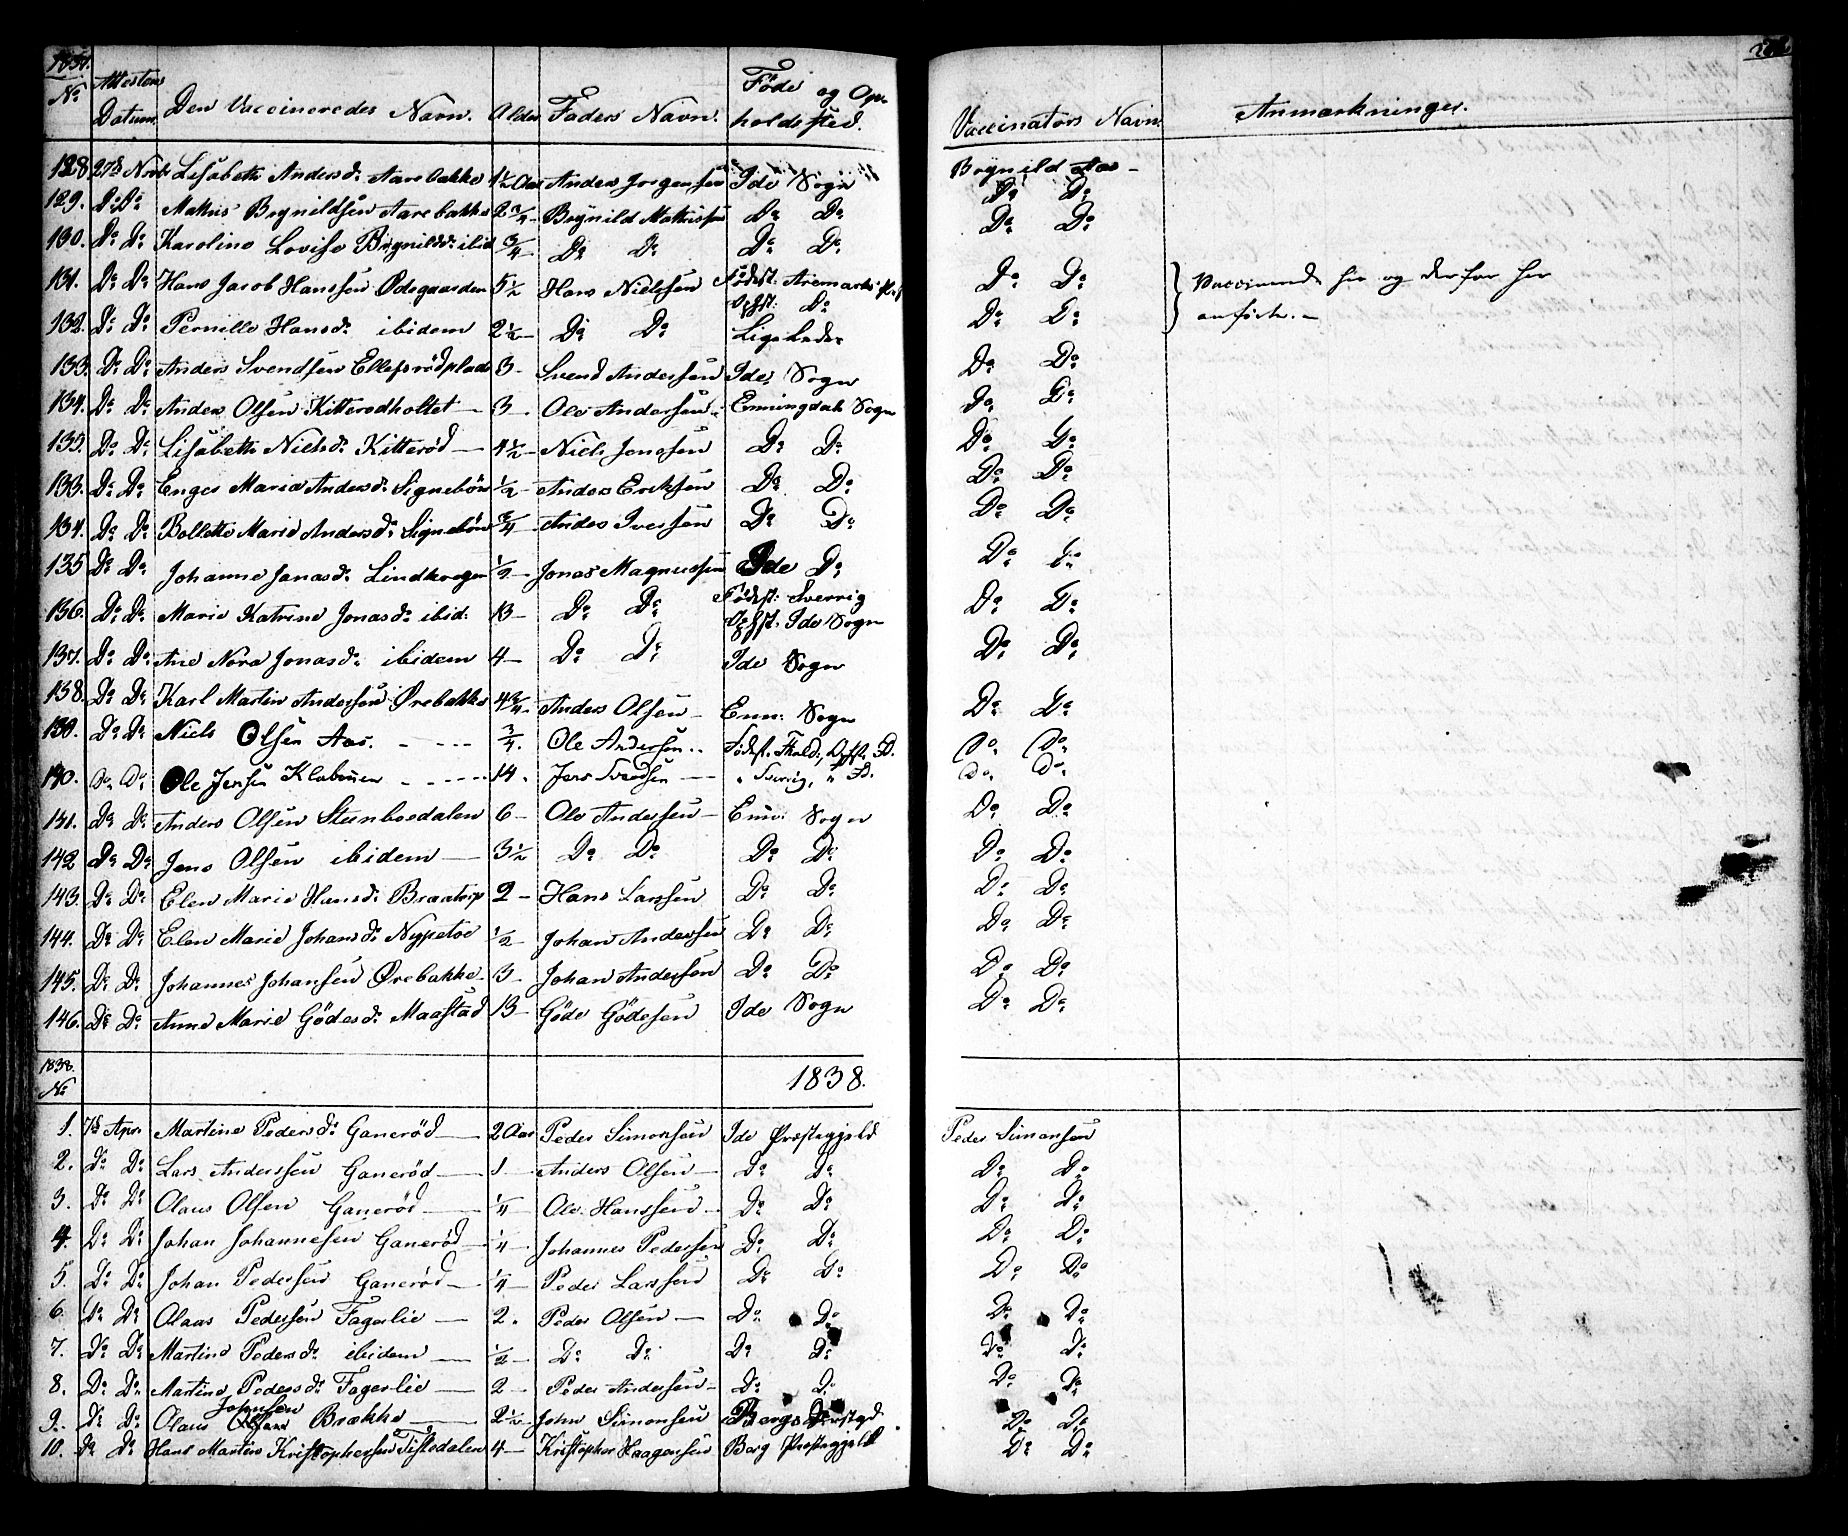 1837.
No Attestens Datum. Den Vaccineredes Navn. Alder Faders Navn. Føde og Opholdssted. Vaccinators Navn. Anmærkninger.
128. 27d Novbr Lisabeth Andersd: Aarebakke 1 1/2 Aar Anders Jørgensen Ide Sogn Brynild Aas -
129. Do Do Mathis Brynildsen Aarebakke 2 3/4 - Brynild Mathissen Do Do Do Do
130. Do Do Karoline Lovise Brynildsd: ibid 3/4 - Do Do Do Do Do Do
131. Do Do Hans Jacob Hanssen Ødegaarden 5 1/2 Hans Nielssen Fødest: Aremarks Opst: Do Do Do Vaccinerede her og derfor her
132. Do Do Pernille Hansd: ibidem 2 1/2 - Do Do Ligeledes Do Do anførte. -
133. Do Do Anders Svendsen Ellefsrødplads 3 - Svend Anderssen Ide Sogn Do Do
134. Do Do Anders Olsen Kitterødholtet - 3 - Ole Anderssen - Enningdals Sogn Do Do
135. Do Do Lisabeth Nielsd: Kitterød - 4 1/2 - Niels Jonassen Do Do Do Do
133. Do Do Inger Maria Andersd: Signebøen 1/2 - Anders Eriksen Do Do Do Do
134. Do Do Bollette Marie Andersd: Signebøen 3/4 - Anders Iverssen Do Do Do Do
135 Do Do Johanne Jonasd: Lindhaugen 1/2 - Jonas Magnussen Ide Do Do Do
136. Do Do Marie Katrine Jonasd: ibid: 13 - Do Do Fødest: Sverrig Opst: Ide Sogn Do Do
137. Do Do Ane Nora Jonasd: ibidem 4 - Do Do Ide Sogn Do Do
138. Do Do Karl Martin Anderssen Ørebakke 4 3/4 - Anders Olsen - Enn: Sogn Do Do
139. Do Do Niels Olsen Aas. - - - 3/4. Ole Andersen - Fødest. Fhald, Opst. D. Do Do
140. Do Do Ole Jensen - - - 14. Jens Svendsen - " Sverrig, " D. Do Do
141. Do Do Anders Olsen Steenboedalen 6 - Ole Anderssen - Enn: Sogn Do Do
142 Do Do Jens Olsen ibidem - 3 1/2 - Do Do Do Do Do Do
143. Do Do Elen Marie Hansd: 2 - Hans Larssen Do Do Do Do
144. Do Do Elen Marie Johansd: 1/2 - Johan Anderssen Do Do Do Do
145. Do Do Johannes Johansen Ørebakke - 3 - Johan Anderssen Do Do Do Do
146. Do Do Anne Marie Gödesd: Maastad 13 - Göde Gödesen Ide Sogn Do Do
1838.
No 1838.
1. 7d Apr. Martine Pedersd: Ganerød - 2 Aar Peder Simonsen Ide Præstegjeld Peder Simonsen
2. Do Do Lars Anderssen Ganerød - 1 - Anders Olsen - Do Do Do Do
3. Do Do Olaus Olsen Ganerød - 1/4 - Ole Hanssen - Do Do Do Do
4. Do Do Johan Johannesen Ganerød - 1/4 - Johannes Pederssen Do Do Do Do
5. Do Do Johan Pederssen Ganerød - 1/4 - Peder Larssen Do Do Do Do
6. Do Do Olaus Pederssen Fagerlie - 2. Peder Olsen - Do Do Do Do
7. Do Do Martine Pedersd: ibidem - 1/2 - Do Do Do Do Do Do
8. Do Do Martine Pedersd: Fagerlie - 2 - Peder Anderssen - Do Do Do Do
9. Do Do Olaus Olsen Johnsen Brække - 2 1/2 - John Simonsen Bergs Præstgd Do Do
10. Do Do Hans Martin Kristophersen Tistedalen 4 - Kristopher Haagensen Berg Præstegjeld Do Do